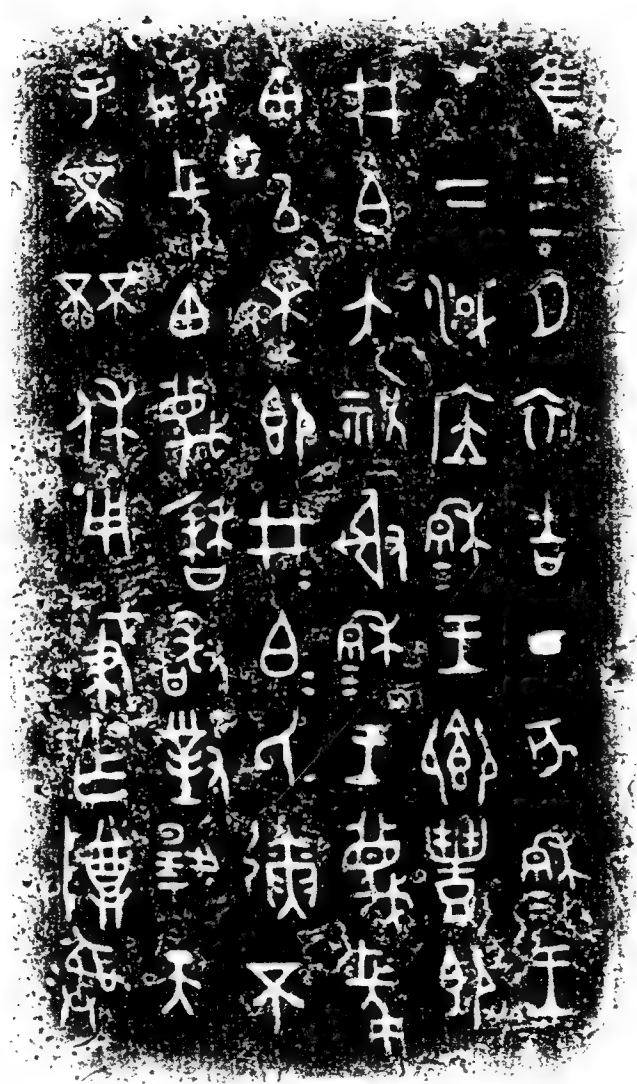 隹三月初吉丁亥穆王
才下淢应穆=王鄉豊即
井白大祝射穆=王蔑長
甶以逨即井=白=氏彌不
姦長甶蔑曆敢對揚天
子不𠀠休用肇乍尊彝